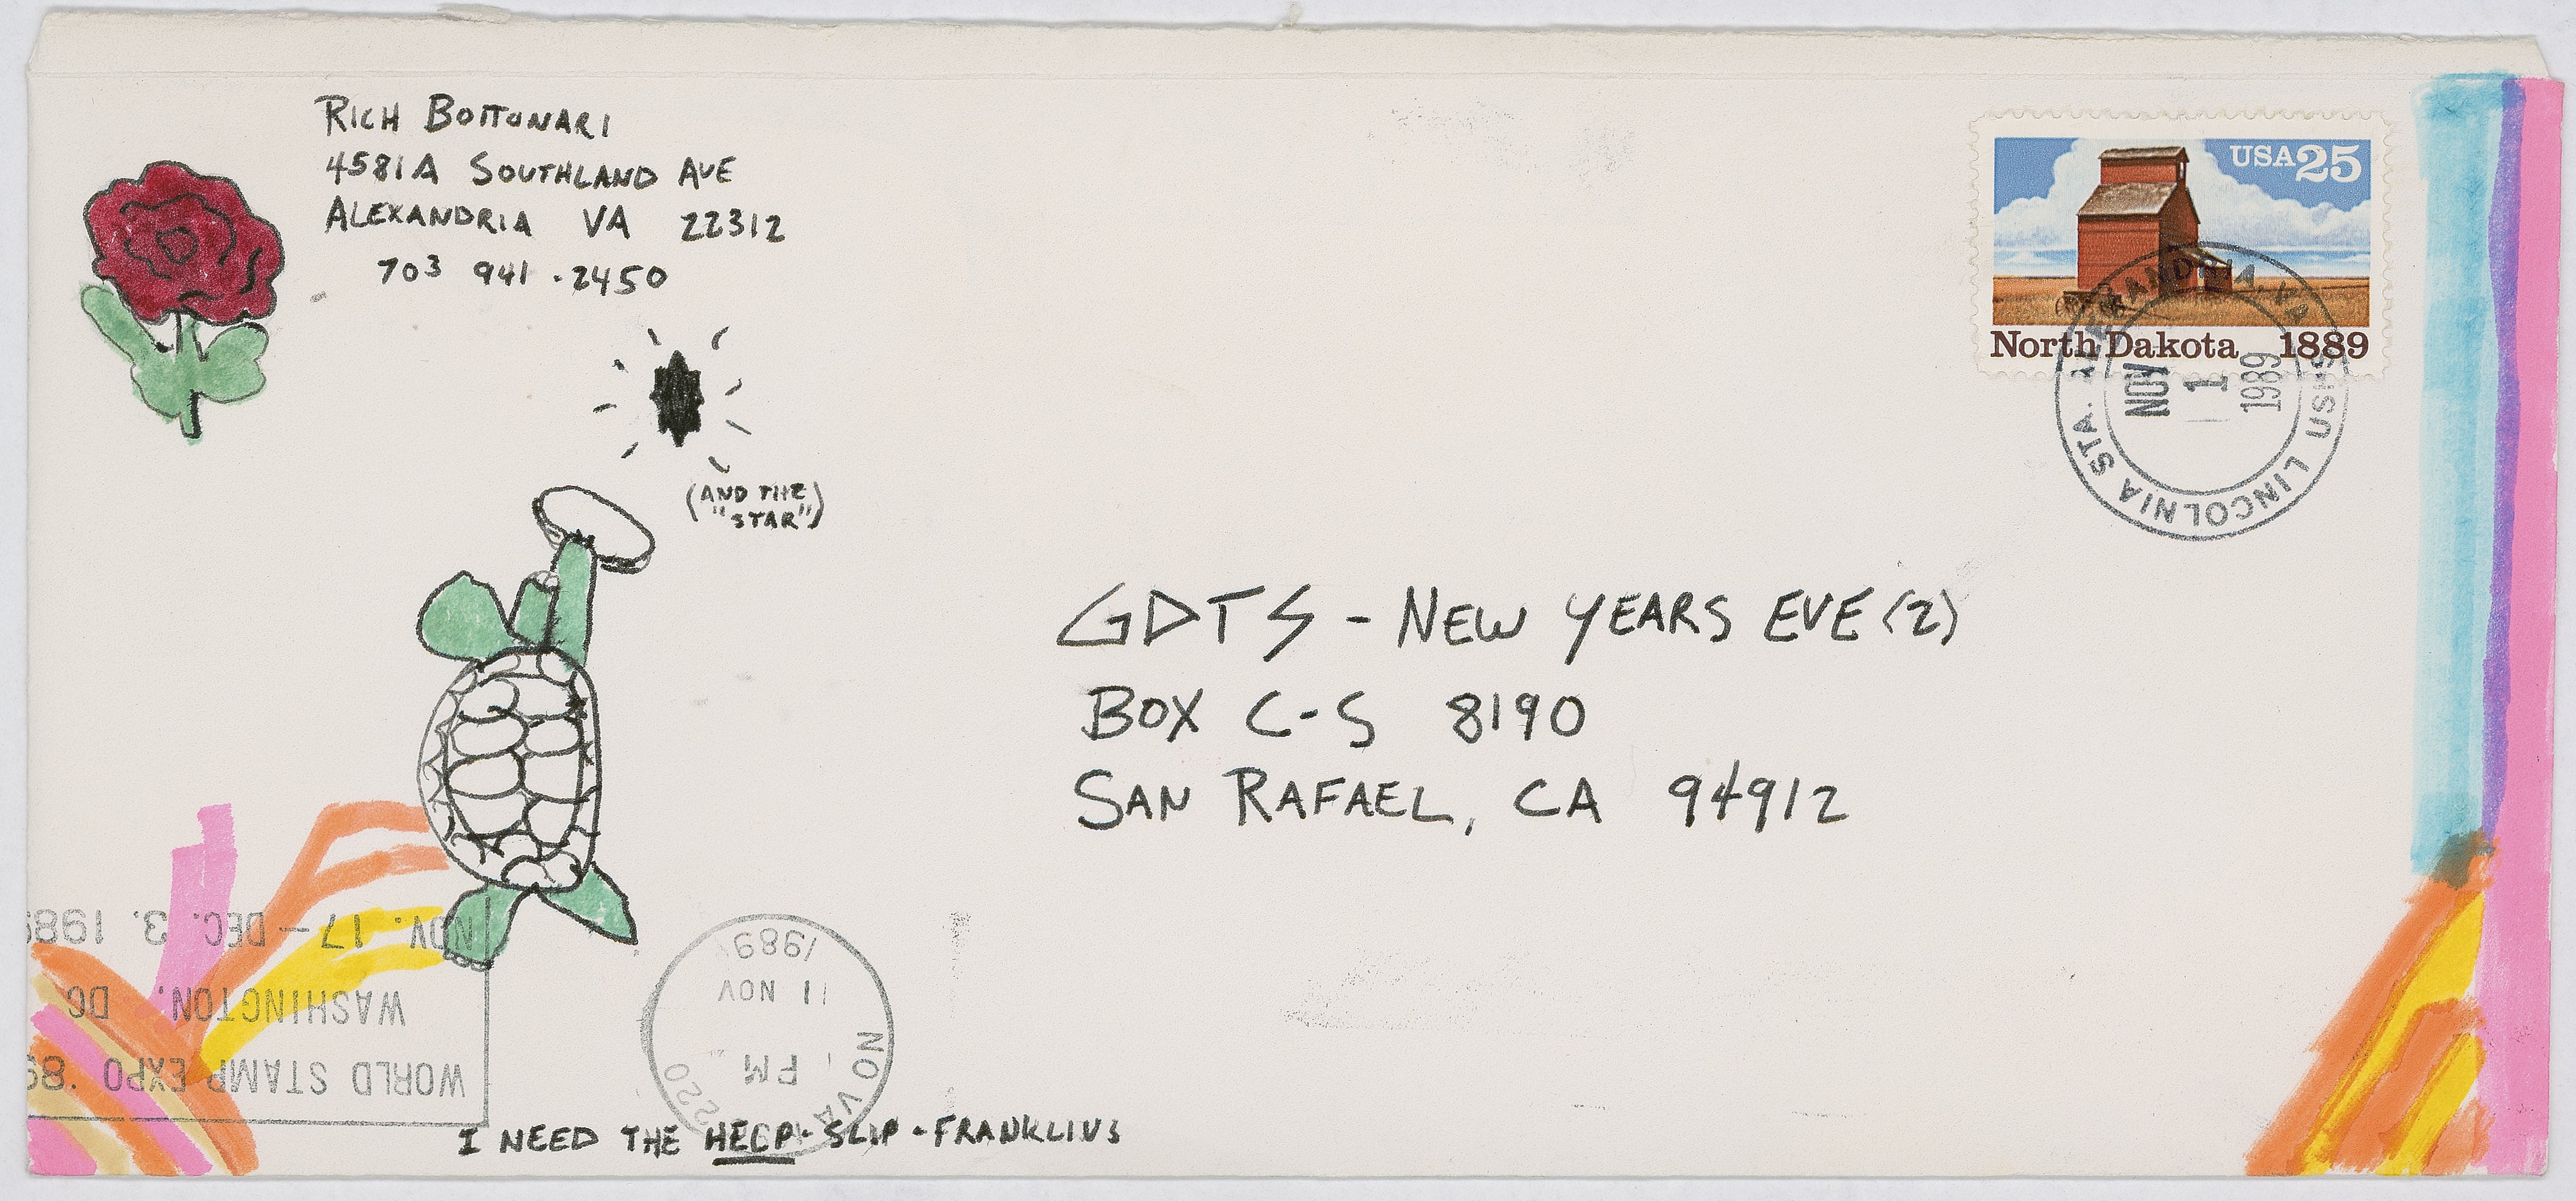 RICH BOTTONARI
4581A SOUTHLAND AVE
ALEXANDRIA VA 22312
703 941-2450
USA25
North Dakota 1889
ALEXANDRIA, VA
NOV
1
1989
LINCOLNIA STA.
USPS
(AND THE
"STAR")
GDTS - NEW YEARS EVE (2)
BOX C-S 8190
SAN RAFAEL, CA 94912
WORLD STAMP EXPO '89
WASHINGTON, DC
NOV. 17 - DEC. 3, 1989
NO VA 220
PM
11 NOV
1989
I NEED THE HELP-SLIP-FRANKLINS